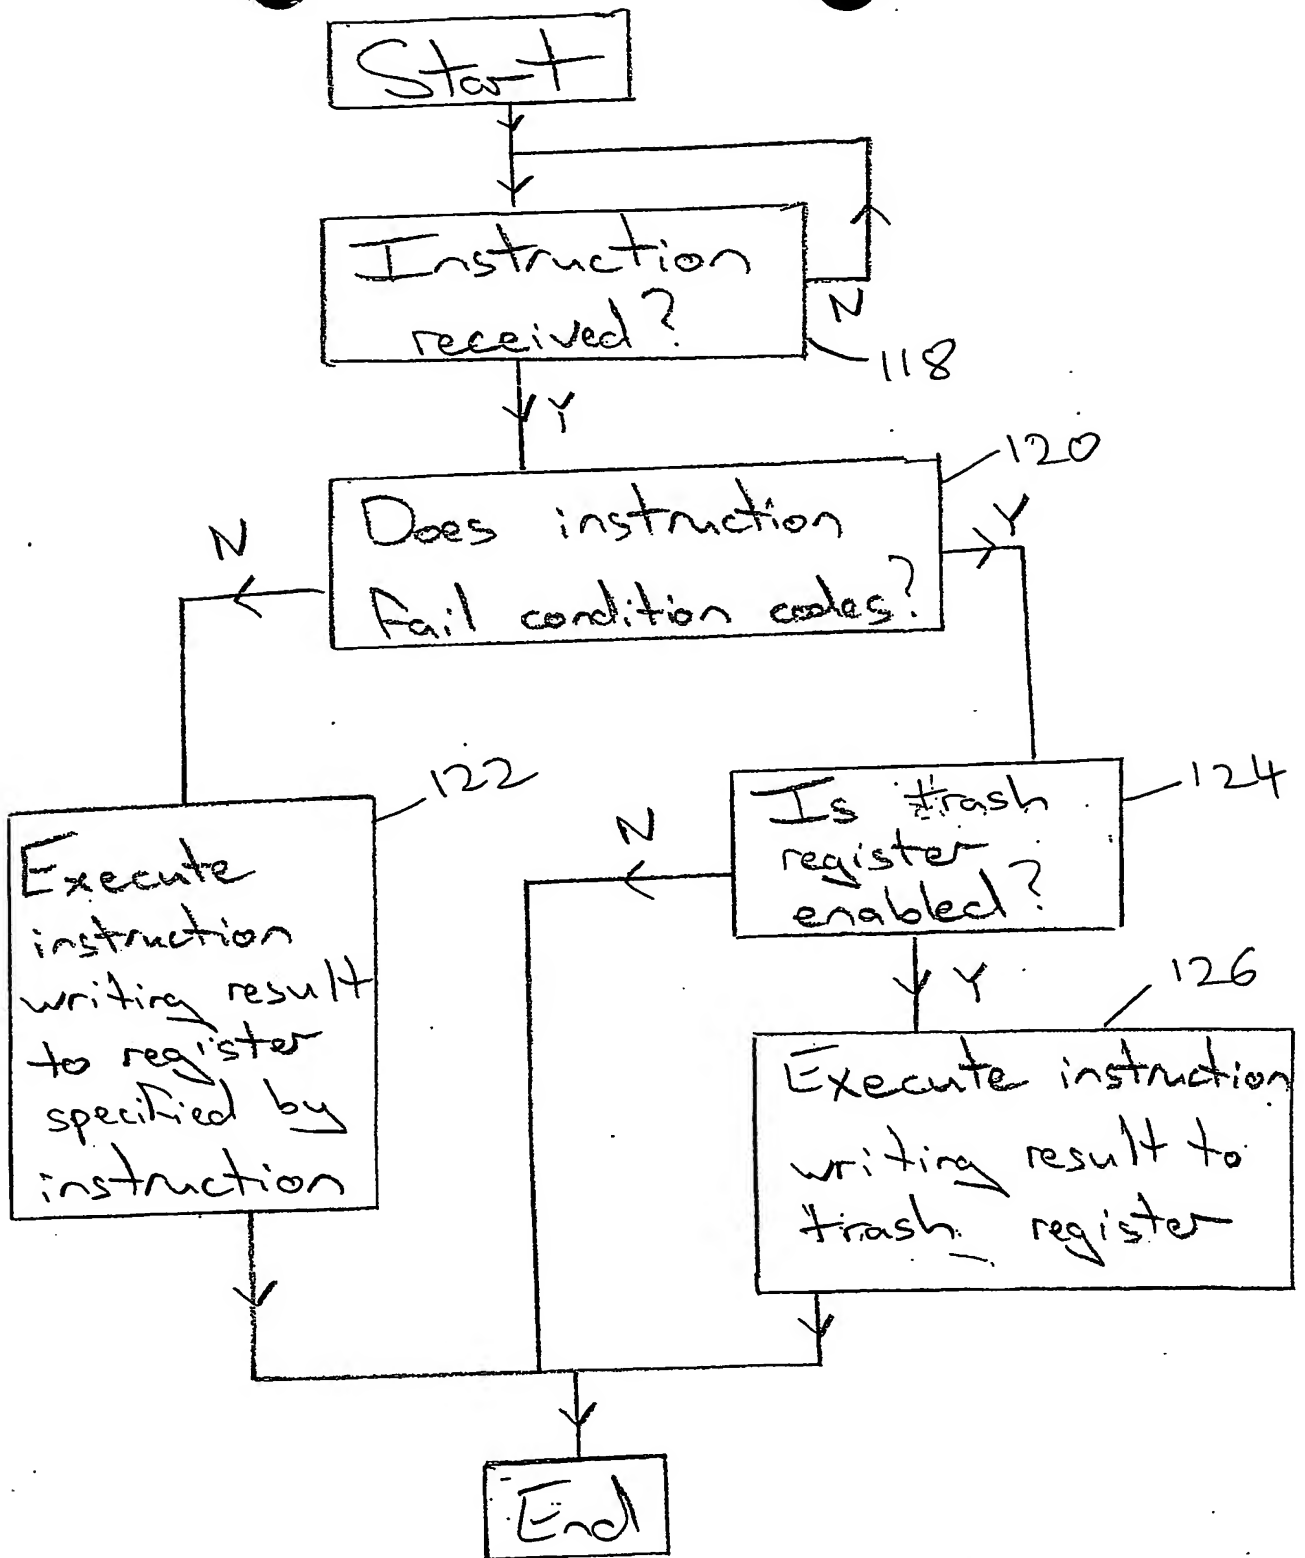 Start
Instruction
received?
N
118
Y
120
Does instruction
Fail condition codes?
N
Y
122
Execute
instruction
writing result
to register
specified by
instruction
124
Is trash
register
enabled?
N
Y
126
Execute instruction
writing result to
trash register
End